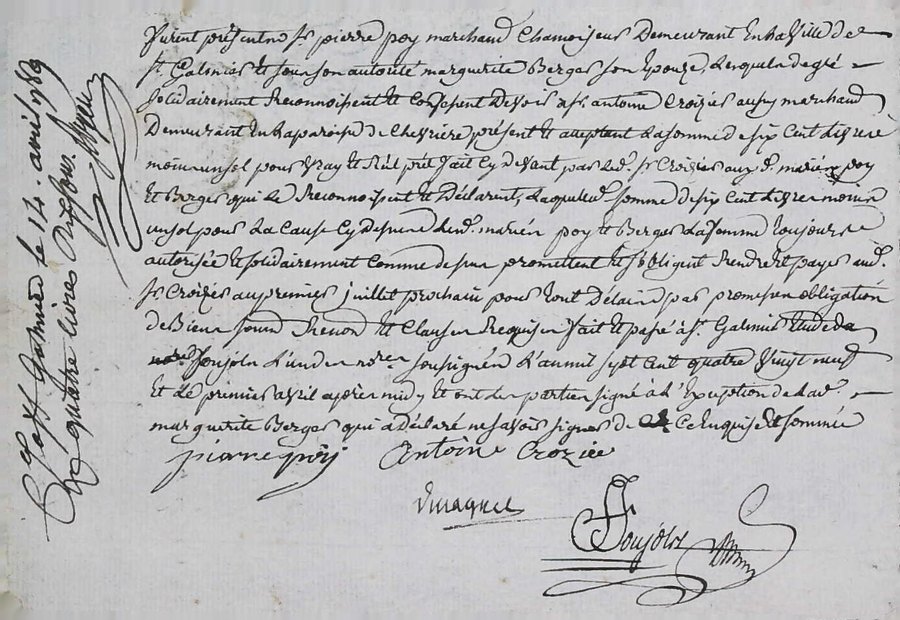 furent présent no. Sr. pierre poy marchand Chamoiseur Demeurant En la Ville de
St. Galmier Et sous son autorité marguerite Berger son Epouze, Lesquels de gré
solidairement Reconnoissent Et Confessent Devoir a Sr. antoine Croizier aussy marchand
Demeurant En la paroisse de Chevrière présent Et acceptant La somme de six Cent Livres
moin un sol pour vray Et réel prêt fait Cy devant par led. Sr Croizier aux d. mariéx poy
Et Berger qui Le Reconnoissent Et Déclarent, Laquelle somme de six Cent Livres moin
un sol pour La Cause Cy dessus Les d. mariés poy Et Berger La femme toujours
autorisée Et solidairement Comme dessus promettent Et s'obligent Rendre Et payer aud.
Sr Croizier au premier juillet prochain pour tout Délaid par promesse obligation
de Biens soum. Renon. Et Clauses Requises fait Et passé a St. Galmier Etude de
Soujoln L'un des nores soussignés L'an mil sept Cent quatre Vingt neuf
Et Le premier avril après midy Et ont Les parties signé à L'Exception de Lad.
marguerite Berger qui a Déclaré ne savoir signer de Ce Enquise Et sommée
pierre poy Antoine Crozier
Soujoln
St Galmier le 14. avril 1789
quatre livres dix sous